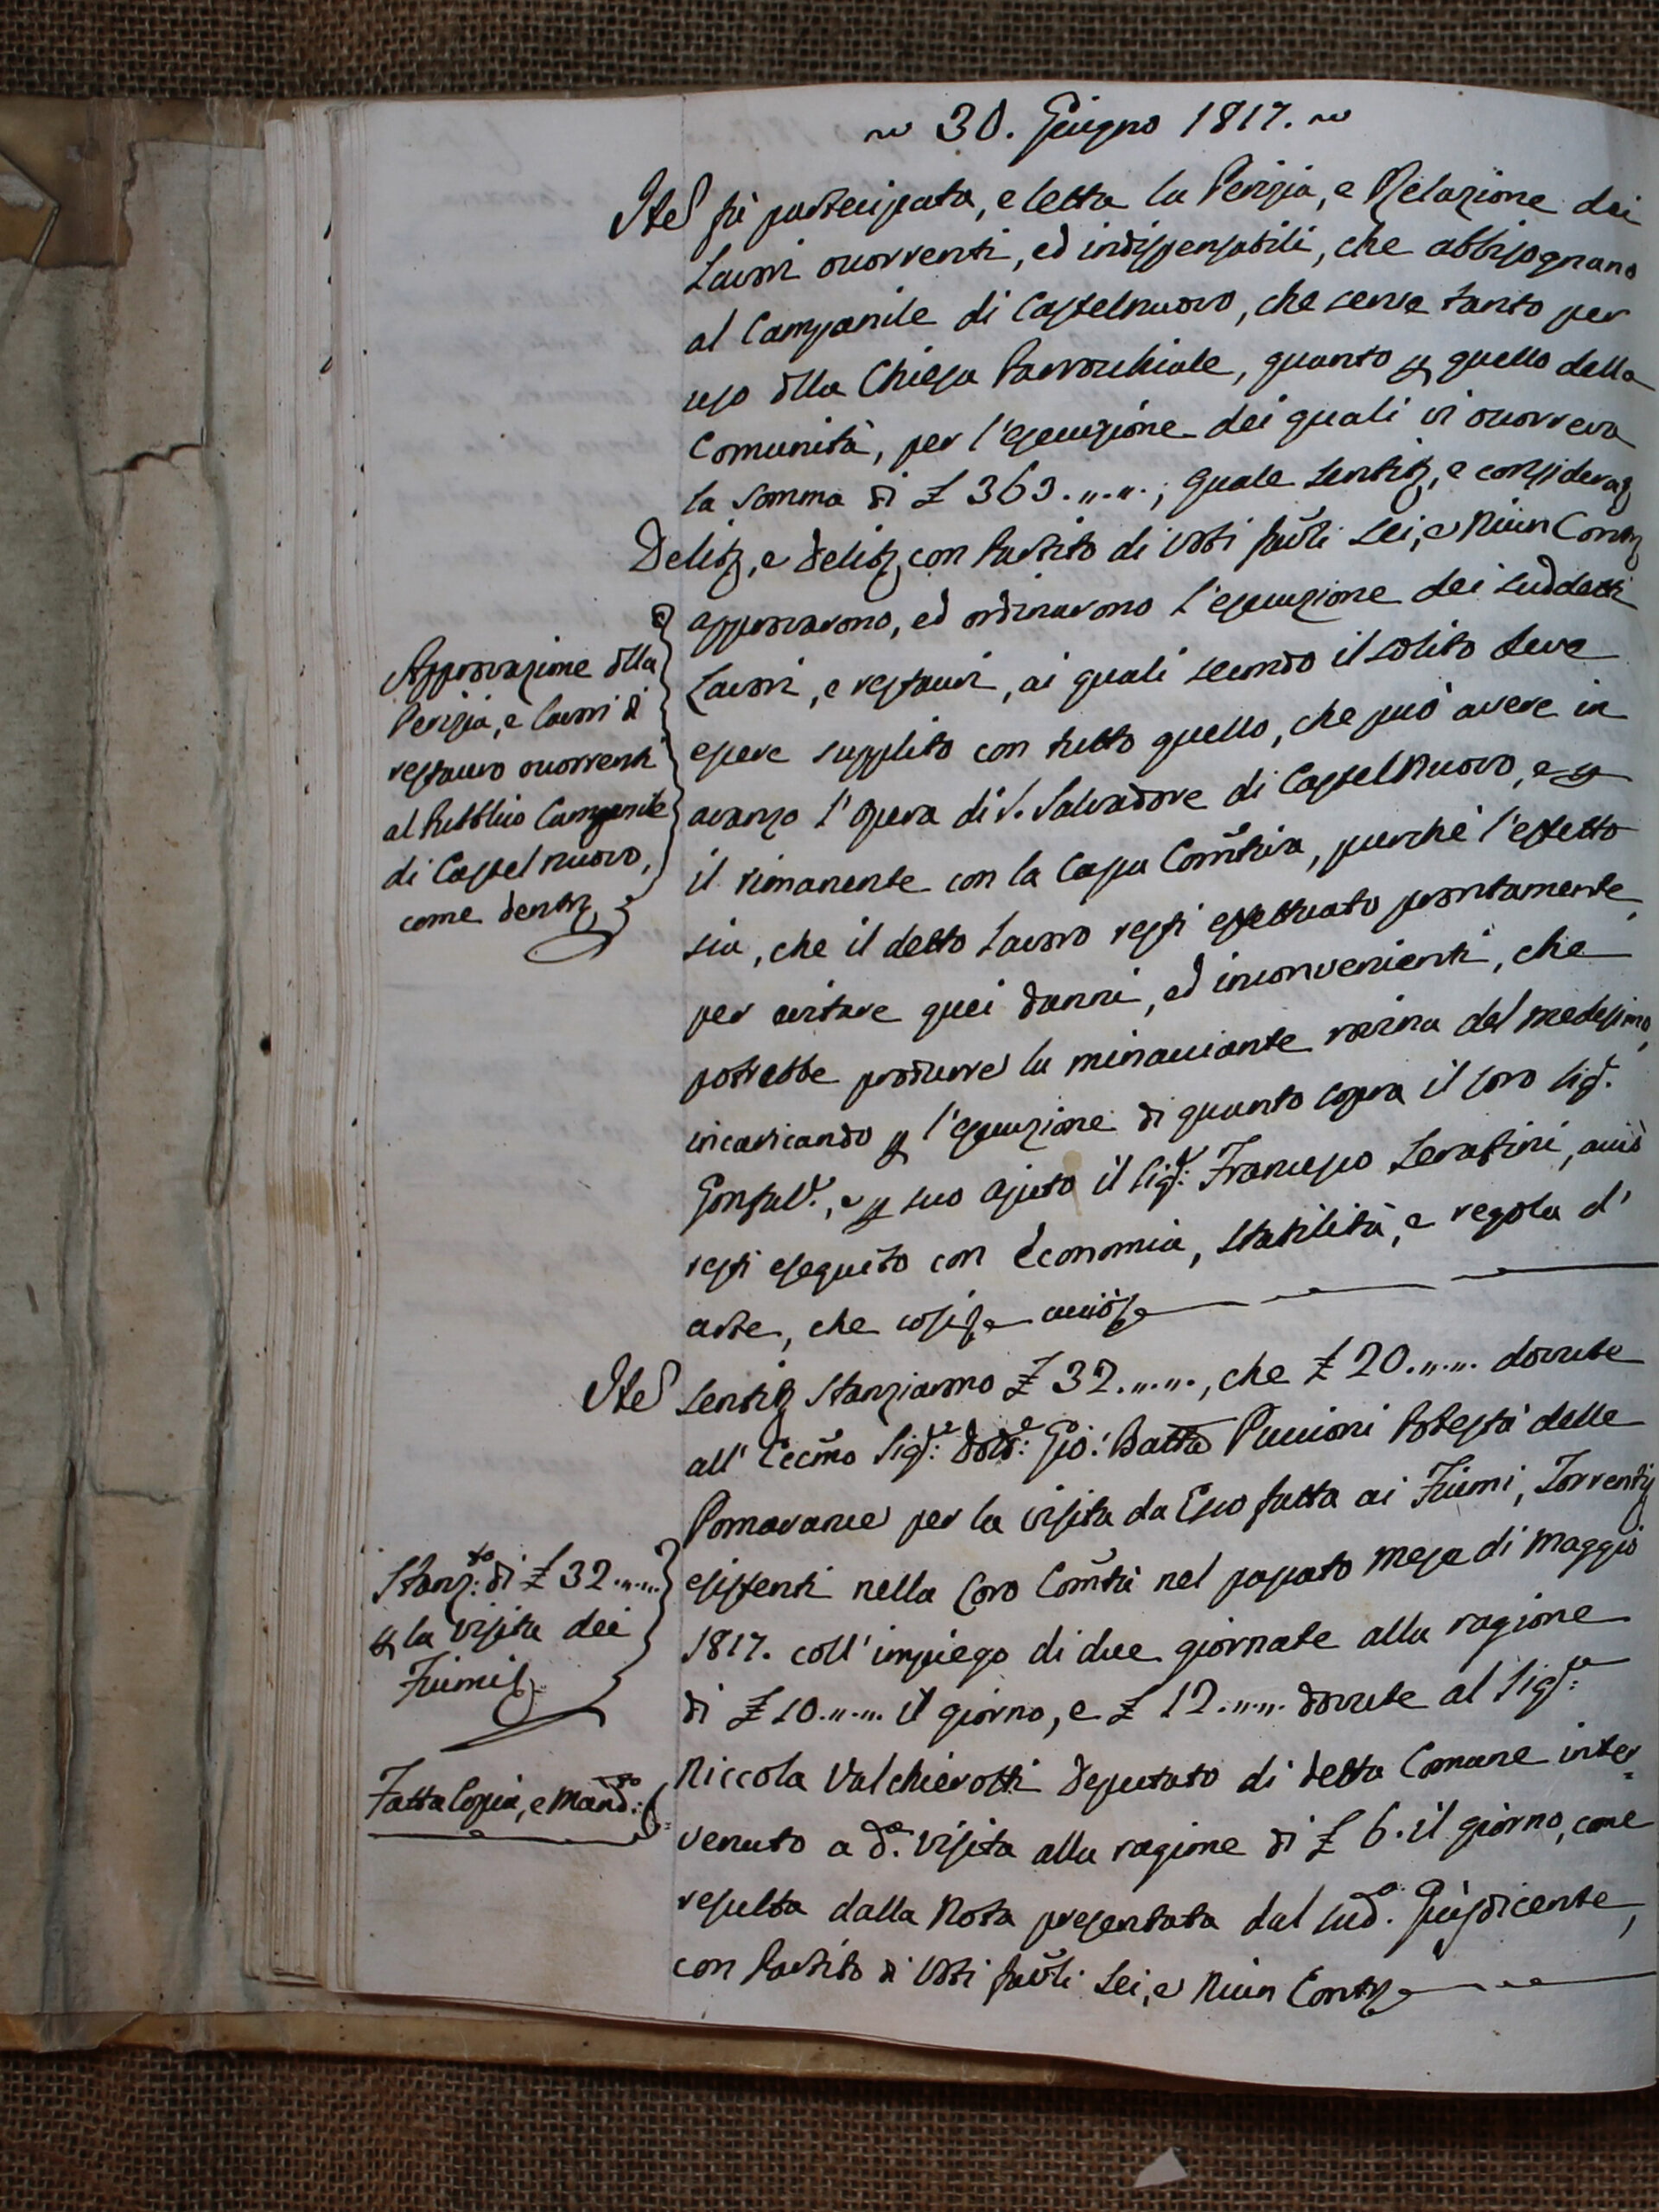 ~ 30. Giugno 1817. ~
Ite fù partecipata, e letta la Perizia, e Relazione dei
Lavori occorrenti, ed indispensabili, che abbisognano
al Campanile di Castelnuovo, che serve tanto per
uso dlla Chiesa Parrocchiale, quanto p quello della
Comunità, per l'esecuzione dei quali vi occorreva
la Somma di £ 363.,,.,,.; quale Sentit, e considerat
Delib, e Delib, con Partito di Voti favli Sei, e Niun Contr
approvarono, ed ordinarono l'esecuzione dei suddetti
Lavori, e restauri, ai quali secondo il solito deve
essere supplito con tutto quello, che può avere in
avanzo l'Opera di S. Salvadore di Castelnuovo, e p
il rimanente con la Cassa Comtiva, purchè l'effetto
sia, che il detto Lavoro resti effettuato prontamente,
per evitare quei danni, ed inconvenienti, che
potrebbe produrre la minacciante rovina del medesimo,
incaricando p l'esecuzione di quanto sopra il loro Sigr.
Gonfalre., e p suo ajuto il Sigr: Francesco Serafini, acciò
resti eseguito con Economia, stabilità, e regola d'
arte, che così acciò
Approvazione dlla
Perizia, e lavori di
restauro occorrenti
al Pubblico Campanile
di Castelnuovo,
come dentr
Ite Sentit Stanziarono £ 32.,,.,,., che £ 20.,,.,,. dovute
all' Eccmo Sigre: Dotre: Gio: Batta Puccioni Potestà delle
Pomarance per la visita da Esso fatta ai Fiumi, Torrenti
esistenti nella Loro Comtà nel passato mese di Maggio
1817. coll'impiego di due giornate alla ragione
di £ 10.,,.,,. il giorno, e £ 12.,,.,,. dovute al Sigre:
Niccola Valchierotti Deputato di detta Comune inter=
venuto a da. Visita alla ragione di £ 6. il giorno, come
resulta dalla Nota presentata dal sudo. Giusdicente,
con Partito di Voti favli Sei, e Niun Contr
Stanzto: di £ 32.,,.,,.
p la visita dei
Fiumi
Fatta Copia, e Mandto: